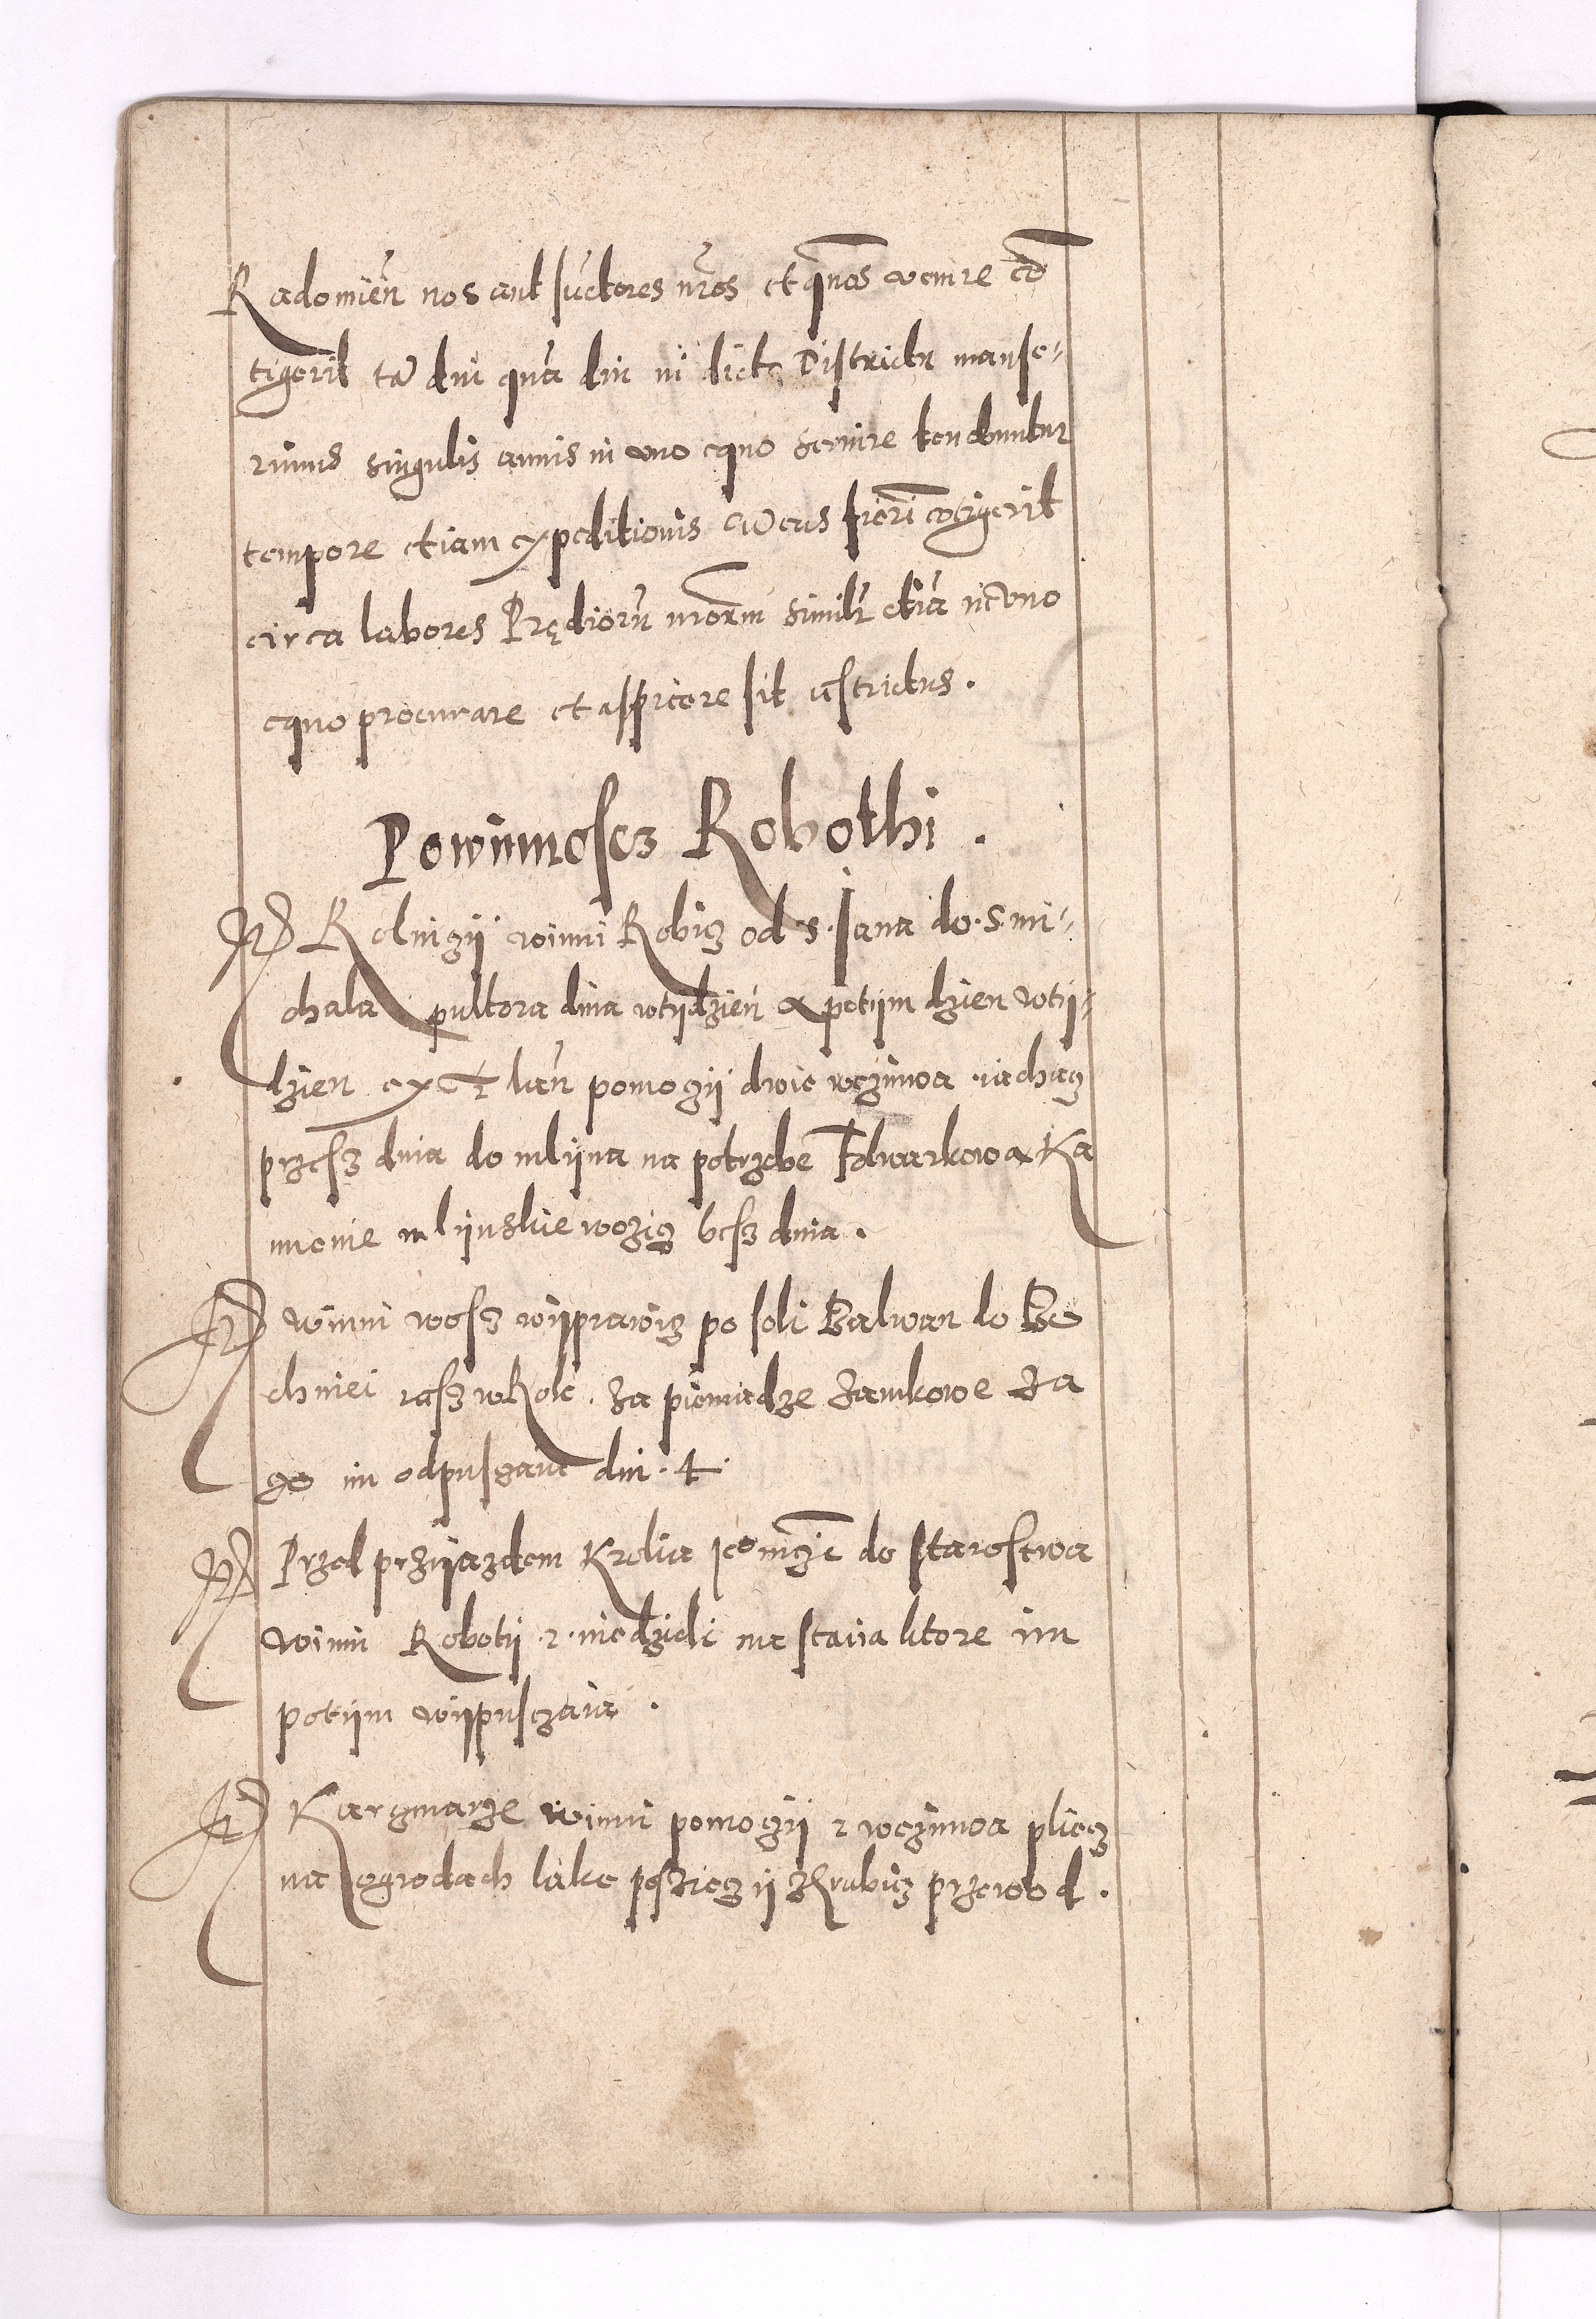 Radomień nos aut suctores nros et qnas venire cō
tigerit tā diu quā diu in dicto Districtu manse-
rimus singulis annis in vno equo servire tenebuntur
tempore etiam expeditionis cū eas fieri cōtigerit
circa labores Prędiorū nrorum similr etiā in vno
equo procurare et aspicere sit astrictus.
Powinnoscz Robothi.
It Rolniczÿ winni Robicz od s. Jana do. S. mi-
chala pultora dnia wtÿdzień a potÿm dzien wtÿ-
dzien ex lan pomoczÿ dwie wczinwa iachacz
przessz dnia do mlÿna na potrzebe Folwarkowa Ka
mienie mlÿnskie wozicz bessz dnia.
It winni wossz wÿprawicz po soli Balwan do Bo
chniei rassz wRok. za pieniadze zamkowe za
czo im odpusczaia dni. 4.
It Przed przÿazdem Krolia Jeo mczi do starostwa
winni Robotÿ 2. niedzieli na stawa ktore im
potÿm wÿpusczaia.
It Karczmarze winni pomoczÿ 2 wczinwa plicz
na ogrodach lake posziecz ÿ zgrabicz przewod.